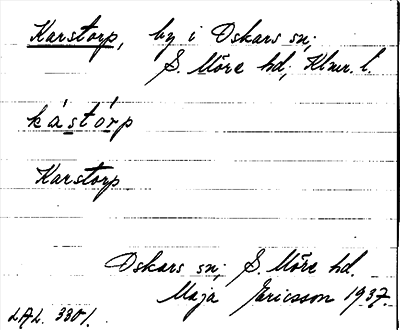 Karstorp, by i Oskars sn;
S. Möre hd; Klmr. l.
kástórp
Karstorp
Oskars sn; S. Möre hd.
Maja Ericsson 1937.
LAL. 3301.